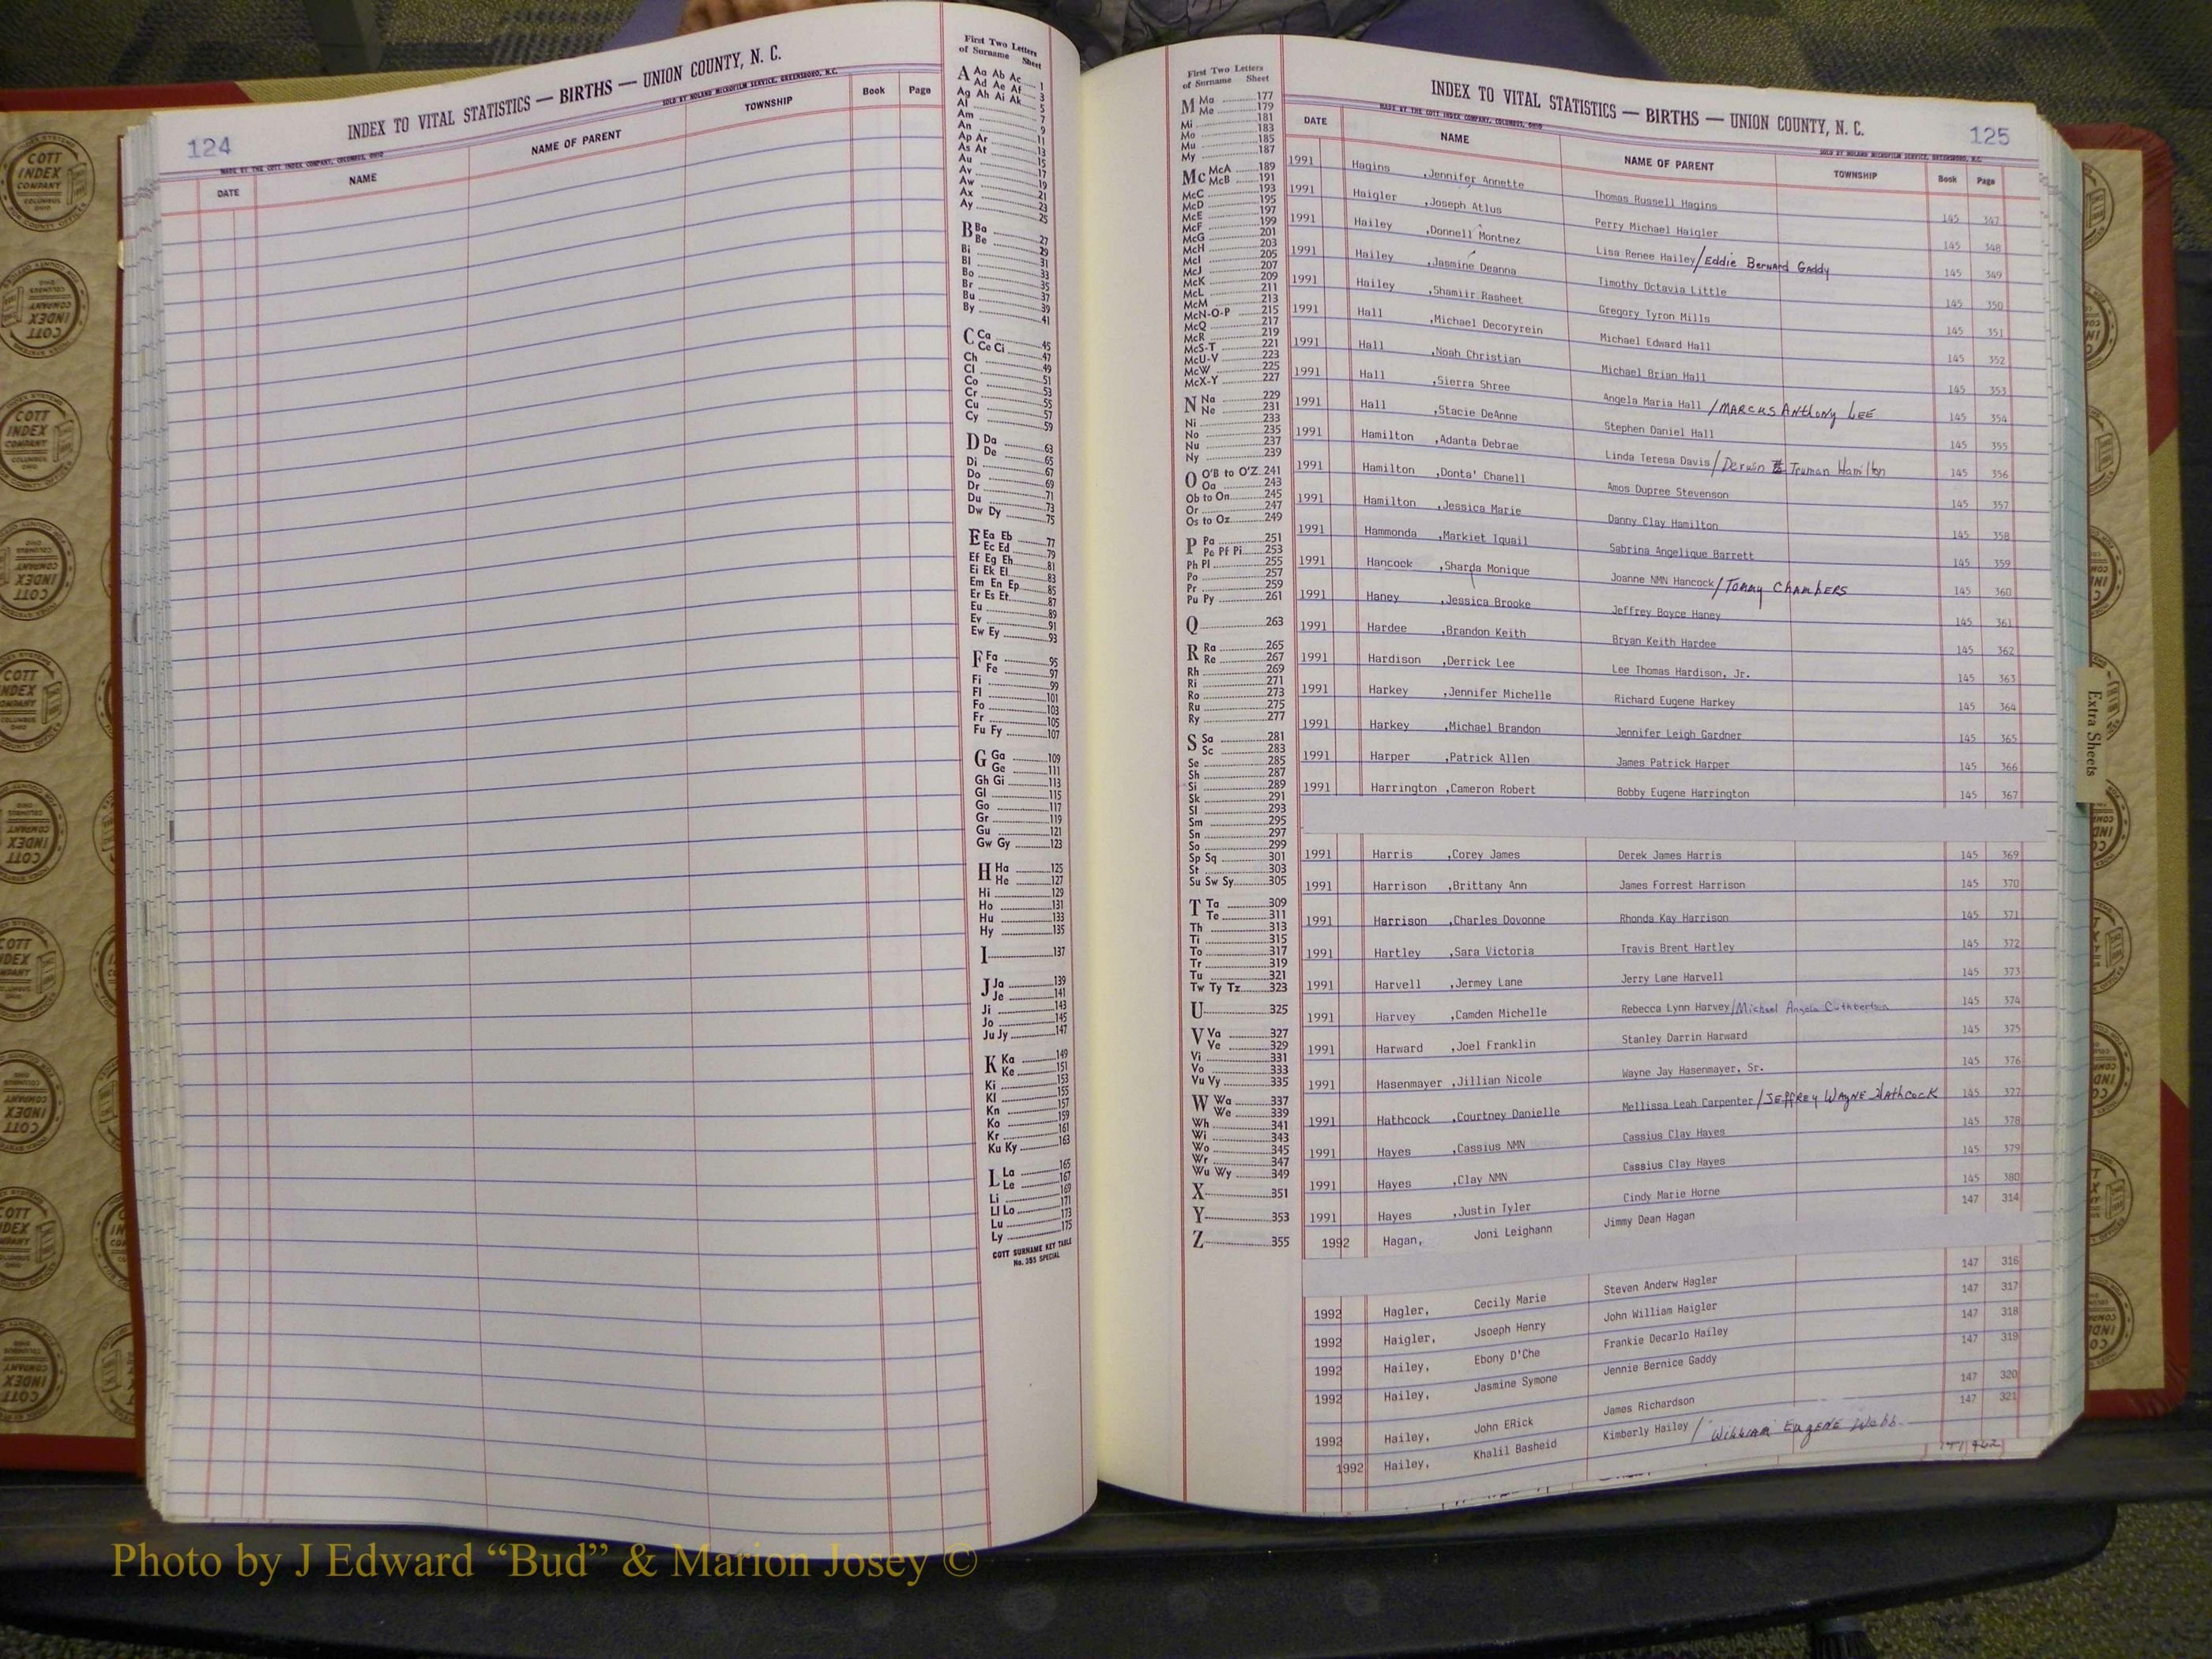 124
INDEX TO VITAL STATISTICS — BIRTHS — UNION COUNTY, N. C.
MADE BY THE COTT INDEX COMPANY, COLUMBUS, OHIO
SOLD BY NOLAND MICROFILM SERVICE, GREENSBORO, N.C.
DATE NAME NAME OF PARENT TOWNSHIP Book Page
First Two Letters
of Surname Sheet
A Aa Ab Ac 1
Ad Ae Af 3
Ag Ah Ai Ak 5
Al 7
Am 9
An 11
Ap Ar 13
As At 15
Au 17
Av 19
Aw 21
Ax 23
Ay 25
B Ba 27
Be 29
Bi 31
Bl 33
Bo 35
Br 37
Bu 39
By 41
C Ca 45
Ce Ci 47
Ch 49
Cl 51
Co 53
Cr 55
Cu 57
Cy 59
D Da 63
De 65
Di 67
Do 69
Dr 71
Du 73
Dw Dy 75
E Ea Eb 77
Ec Ed 79
Ef Eg Eh 81
Ei Ek El 83
Em En Ep 85
Er Es Et 87
Eu 89
Ev 91
Ew Ey 93
F Fa 95
Fe 97
Fi 99
Fl 101
Fo 103
Fr 105
Fu Fy 107
G Ga 109
Ge 111
Gh Gi 113
Gl 115
Go 117
Gr 119
Gu 121
Gw Gy 123
H Ha 125
He 127
Hi 129
Ho 131
Hu 133
Hy 135
I 137
J Ja 139
Je 141
Ji 143
Jo 145
Ju Jy 147
K Ka 149
Ke 151
Ki 153
Kl 155
Kn 157
Ko 159
Kr 161
Ku Ky 163
L La 165
Le 167
Li 169
Ll Lo 171
Lu 173
Ly 175
COTT SURNAME KEY TABLE
No. 355 SPECIAL
First Two Letters
of Surname Sheet
M Ma 177
Me 179
Mi 181
Mo 183
Mu 185
My 187
Mc McA 189
McB 191
McC 193
McD 195
McE 197
McF 199
McG 201
McH 203
McI 205
McJ 207
McK 209
McL 211
McM 213
McN-O-P 215
McQ 217
McR 219
McS-T 221
McU-V 223
McW 225
McX-Y 227
N Na 229
Ne 231
Ni 233
No 235
Nu 237
Ny 239
O O'B to O'Z 241
Oa 243
Ob to On 245
Or 247
Os to Oz 249
P Pa 251
Pe Pf Pi 253
Ph Pl 255
Po 257
Pr 259
Pu Py 261
Q 263
R Ra 265
Re 267
Rh 269
Ri 271
Ro 273
Ru 275
Ry 277
S Sa 281
Sc 283
Se 285
Sh 287
Si 289
Sk 291
Sl 293
Sm 295
Sn 297
So 299
Sp Sq 301
St 303
Su Sw Sy 305
T Ta 309
Te 311
Th 313
Ti 315
To 317
Tr 319
Tu 321
Tw Ty Tz 323
U 325
V Va 327
Ve 329
Vi 331
Vo 333
Vu Vy 335
W Wa 337
We 339
Wh 341
Wi 343
Wo 345
Wr 347
Wu Wy 349
X 351
Y 353
Z 355
INDEX TO VITAL STATISTICS — BIRTHS — UNION COUNTY, N. C.
125
MADE BY THE COTT INDEX COMPANY, COLUMBUS, OHIO
SOLD BY NOLAND MICROFILM SERVICE, GREENSBORO, N.C.
DATE NAME NAME OF PARENT TOWNSHIP Book Page
1991 Hagins ,Jennifer Annette Thomas Russell Hagins 145 347
1991 Haigler ,Joseph Atlus Perry Michael Haigler 145 348
1991 Hailey ,Donnell Montnez Lisa Renee Hailey/Eddie Bernard Gaddy 145 349
1991 Hailey ,Jasmine Deanna Timothy Octavia Little 145 350
1991 Hailey ,Shamiir Rasheet Gregory Tyron Mills 145 351
1991 Hall ,Michael Decoryrein Michael Edward Hall 145 352
1991 Hall ,Noah Christian Michael Brian Hall 145 353
1991 Hall ,Sierra Shree Angela Maria Hall /MARCUS Anthony LEE 145 354
1991 Hall ,Stacie DeAnne Stephen Daniel Hall 145 355
1991 Hamilton ,Adanta Debrae Linda Teresa Davis/Derwin Truman Hamilton 145 356
1991 Hamilton ,Donta' Chanell Amos Dupree Stevenson 145 357
1991 Hamilton ,Jessica Marie Danny Clay Hamilton 145 358
1991 Hammonda ,Markiet Iquail Sabrina Angelique Barrett 145 359
1991 Hancock ,Sharda Monique Joanne NMN Hancock/Tommy Chambers 145 360
1991 Haney ,Jessica Brooke Jeffrey Boyce Haney 145 361
1991 Hardee ,Brandon Keith Bryan Keith Hardee 145 362
1991 Hardison ,Derrick Lee Lee Thomas Hardison, Jr. 145 363
1991 Harkey ,Jennifer Michelle Richard Eugene Harkey 145 364
1991 Harkey ,Michael Brandon Jennifer Leigh Gardner 145 365
1991 Harper ,Patrick Allen James Patrick Harper 145 366
1991 Harrington ,Cameron Robert Bobby Eugene Harrington 145 367
1991 Harris ,Corey James Derek James Harris 145 369
1991 Harrison ,Brittany Ann James Forrest Harrison 145 370
1991 Harrison ,Charles Dovonne Rhonda Kay Harrison 145 371
1991 Hartley ,Sara Victoria Travis Brent Hartley 145 372
1991 Harvell ,Jermey Lane Jerry Lane Harvell 145 373
1991 Harvey ,Camden Michelle Rebecca Lynn Harvey/Michael Angelo Cuthbertson 145 374
1991 Harward ,Joel Franklin Stanley Darrin Harward 145 375
1991 Hasenmayer ,Jillian Nicole Wayne Jay Hasenmayer, Sr. 145 376
1991 Hathcock ,Courtney Danielle Mellissa Leah Carpenter/JEffREy WAyNE Hathcock 145 377
1991 Hayes ,Cassius NMN Cassius Clay Hayes 145 378
1991 Hayes ,Clay NMN Cassius Clay Hayes 145 379
1991 Hayes ,Justin Tyler Cindy Marie Horne 145 380
1992 Hagan, Joni Leighann Jimmy Dean Hagan 147 314
1992 Hagler, Cecily Marie Steven Anderw Hagler 147 316
1992 Haigler, Jsoeph Henry John William Haigler 147 317
1992 Hailey, Ebony D'Che Frankie Decarlo Hailey 147 318
1992 Hailey, Jasmine Symone Jennie Bernice Gaddy 147 319
1992 Hailey, John ERick James Richardson 147 320
1992 Hailey, Khalil Basheid Kimberly Hailey / William EugENE Webb 147 321
Extra Sheets
COTT INDEX COMPANY
Photo by J Edward “Bud” & Marion Josey ©